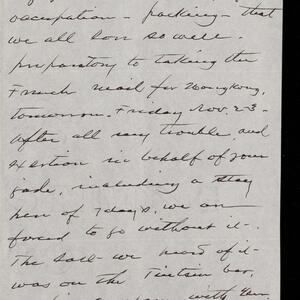 occupation - packing - that
we all do so well.
preparatory to taking the
French mail for Hongkong,
tomorrow. Friday Nov. 23-
After all my trouble, and
exertion in behalf of your
jade, including a stay
here of 7 days, we are
forced to go without it -
The last we heard of it
was on the Tientsin bar,
with